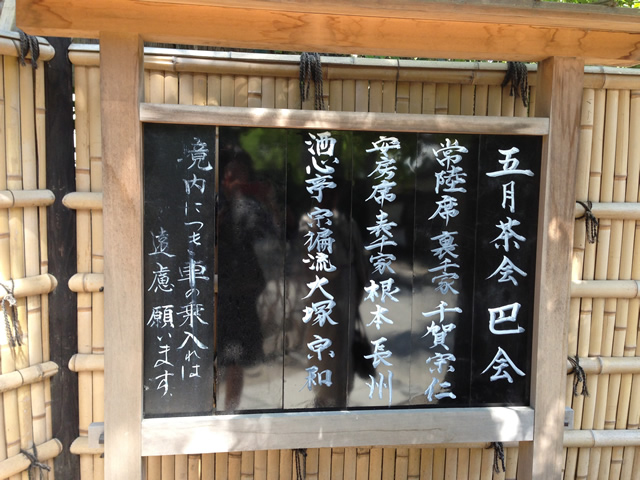 五月茶会 巴会
常陸席 裏千家 千賀宗仁
安房席 表千家 根本長州
洒心亭 宗徧流 大塚宗和
境内につき車の乗入れは
遠慮願います。